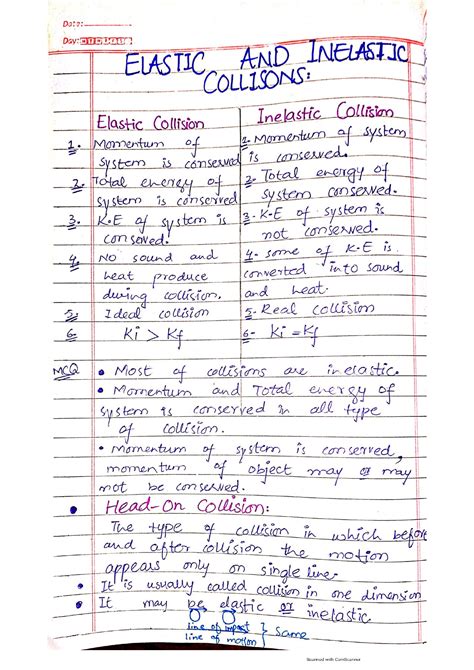 Date:
Day:
ELASTIC AND INELASTIC
COLLISONS:
Elastic Collision
1. Momentum of
system is conserved
2. Total energy of
system is conserved
3. K.E of system is
conserved.
4. No sound and
heat produce
during collision.
5. Ideal collision
6. Ki > Kf
Inelastic Collision
1. Momentum of system
is conserved.
2. Total energy of
system conserved.
3. K.E of system is
not conserved.
4. some of K.E is
converted into sound
and heat.
5. Real collision
6. Ki = Kf
MCQ • Most of collisions are inelastic.
• Momentum and Total energy of
system is conserved in all type
of collision.
• Momentum of system is conserved,
momentum of object may or may
not be conserved.
• Head-On Collision:
The type of collision in which before
and after collision the motion
appears only on single line.
• It is usually called collision in one dimension
• It may be elastic or inelastic
line of impact
line of motion } same
Scanned with CamScanner